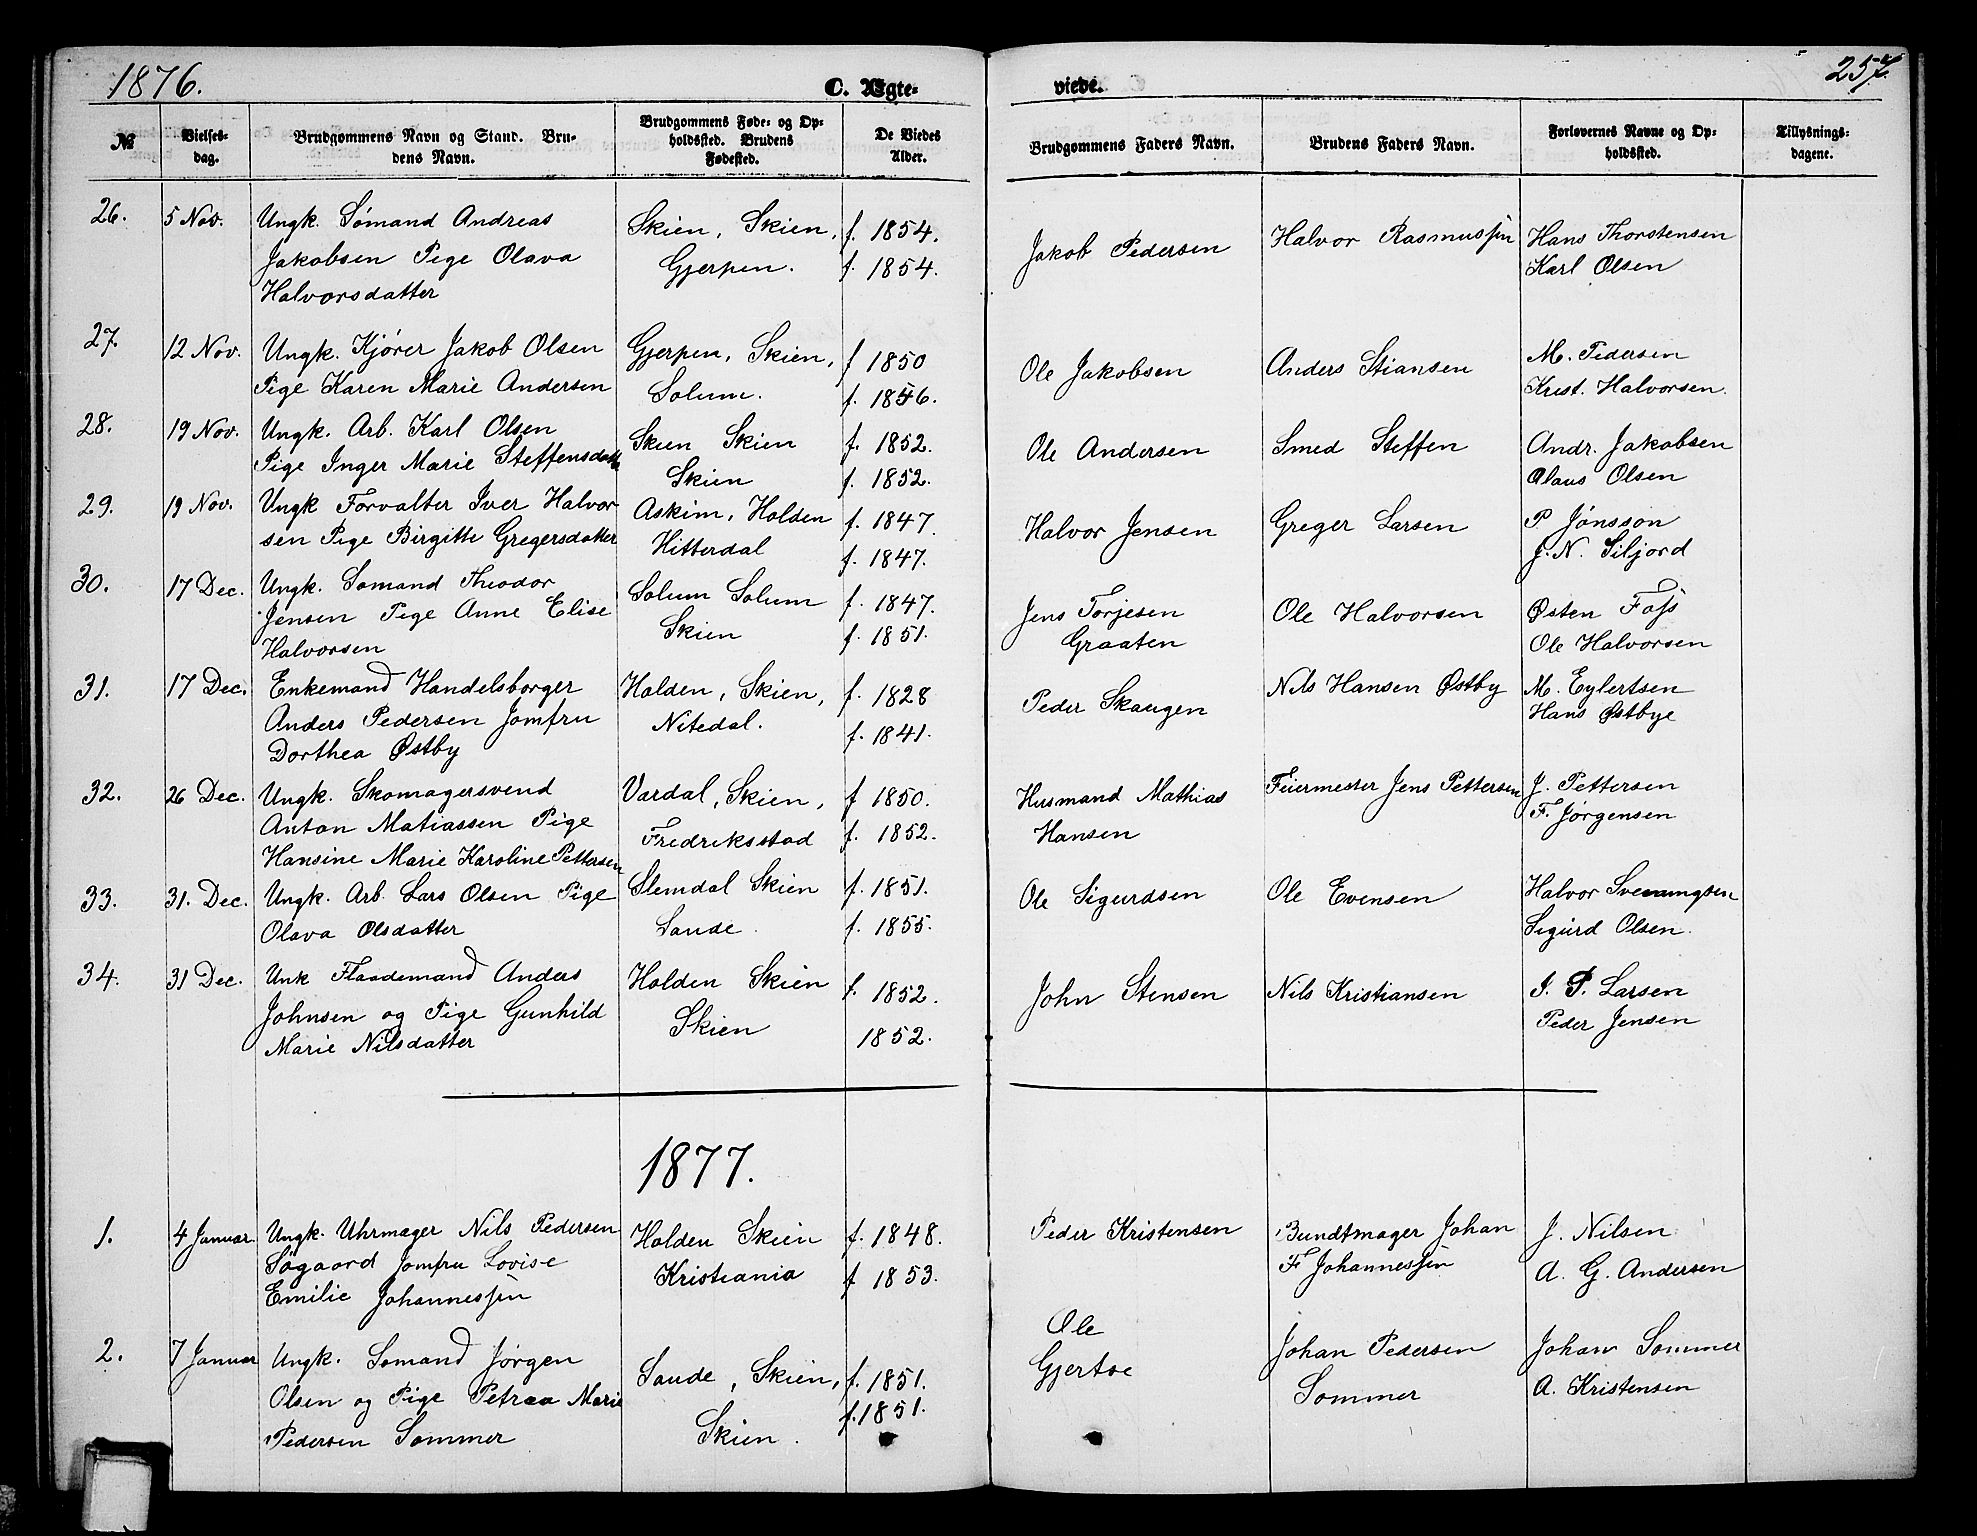 1876.
C. Ægte-
viede.
257.
№
Vielses-
dag.
Brudgommens Navn og Stand. Bru-
dens Navn.
Brudgommens Føde- og Op-
holdssted. Brudens
Fødested.
De Viedes
Alder.
Brudgommens Faders Navn.
Brudens Faders Navn.
Forlovernes Navne og Op-
holdssted.
Tillysnings-
dagene.
26.
5 Nov.
Ungk. Sømand Andreas
Jakobsen Pige Olava
Halvorsdatter
Skien, Skien,
Gjerpen.
f. 1854.
f. 1854.
Jakob Pedersen
Halvor Rasmussen
Hans Thorstensen
Karl Olsen
27.
12 Nov.
Ungk. Kjører Jakob Olsen
Pige Karen Marie Andersen
Gjerpen, Skien,
Solum.
f 1850
f. 1846.
Ole Jakobsen
Anders Stiansen
M. Pedersen
Krist. Halvorsen.
28.
19 Nov.
Ungk. Arb. Karl Olsen
Pige Inger Marie Steffensdatt
Skien Skien
Skien
f. 1852.
f. 1852.
Ole Andersen
Smed Steffen
Andr. Jakobsen
Olaus Olsen
29.
19 Nov.
Ungk Forvalter Iver Halvor
sen Pige Birgitte Gregersdatter
Askim, Holden
Hitterdal
f. 1847.
f. 1847.
Halvor Jensen
Greger Larsen
P Jønsson
J. N. Siljord
30.
17 Dec.
Ungk. Sømand Theodor
Jensen Pige Anne Elise
Halvorsen
Solum Solum
Skien
f. 1847.
f. 1851.
Jens Torjesen
Graaten
Ole Halvorsen
Østen Foss
Ole Halvorsen
31.
17 Dec.
Enkemand Handelsborger
Anders Pedersen Jomfru
Dorthea Østby
Holden, Skien,
Nitedal.
f. 1828
f. 1841.
Peder Skaugen
Nils Hansen Østby
M. Eylertsen
Hans Østbye
32.
26 Dec.
Ungk. Skomagersvend
Anton Matiassen Pige
Hansine Marie Karoline Pettersen
Vardal, Skien,
Fredriksstad
f 1850.
f. 1852.
Husmand Mathias
Hansen
Feiermester Jens Pettersen
J. Pettersen
F. Jørgensen
33.
31. Dec.
Ungk. Arb. Lars Olsen Pige
Olava Olsdatter
Slemdal Skien
Sande.
f. 1851.
f. 1855.
Ole Sigurdsen
Ole Evensen
Halvor Svenungsen
Sigurd Olsen.
34.
31 Dec.
Unk Flaademand Anders
Johnsen og Pige Gunhild
Marie Nilsdatter
Holden Skien
Skien
f. 1852.
1852.
John Stensen
Nils Kristiansen
I. P. Larsen
Peder Jensen
1877.
1.
4 Januar
Ungk. Uhrmager Nils Pedersen
Søgaard Jomfru Lovise
Emilie Johannessen
Holden Skien
Kristiania
f. 1848.
f 1853.
Peder Kristensen
Bundtmager Johan
F Johannessen
J. Nilsen
A. G. Andersen
2.
7 Januar
Ungk. Sømand Jørgen
Olsen og Pige Petraa Marie
Pedersen Sommer
Sande, Skien,
Skien.
f. 1851.
f. 1851.
Ole
Gjertse
Johan Pedersen
Sommer
Johan Sommer
A. Kristensen